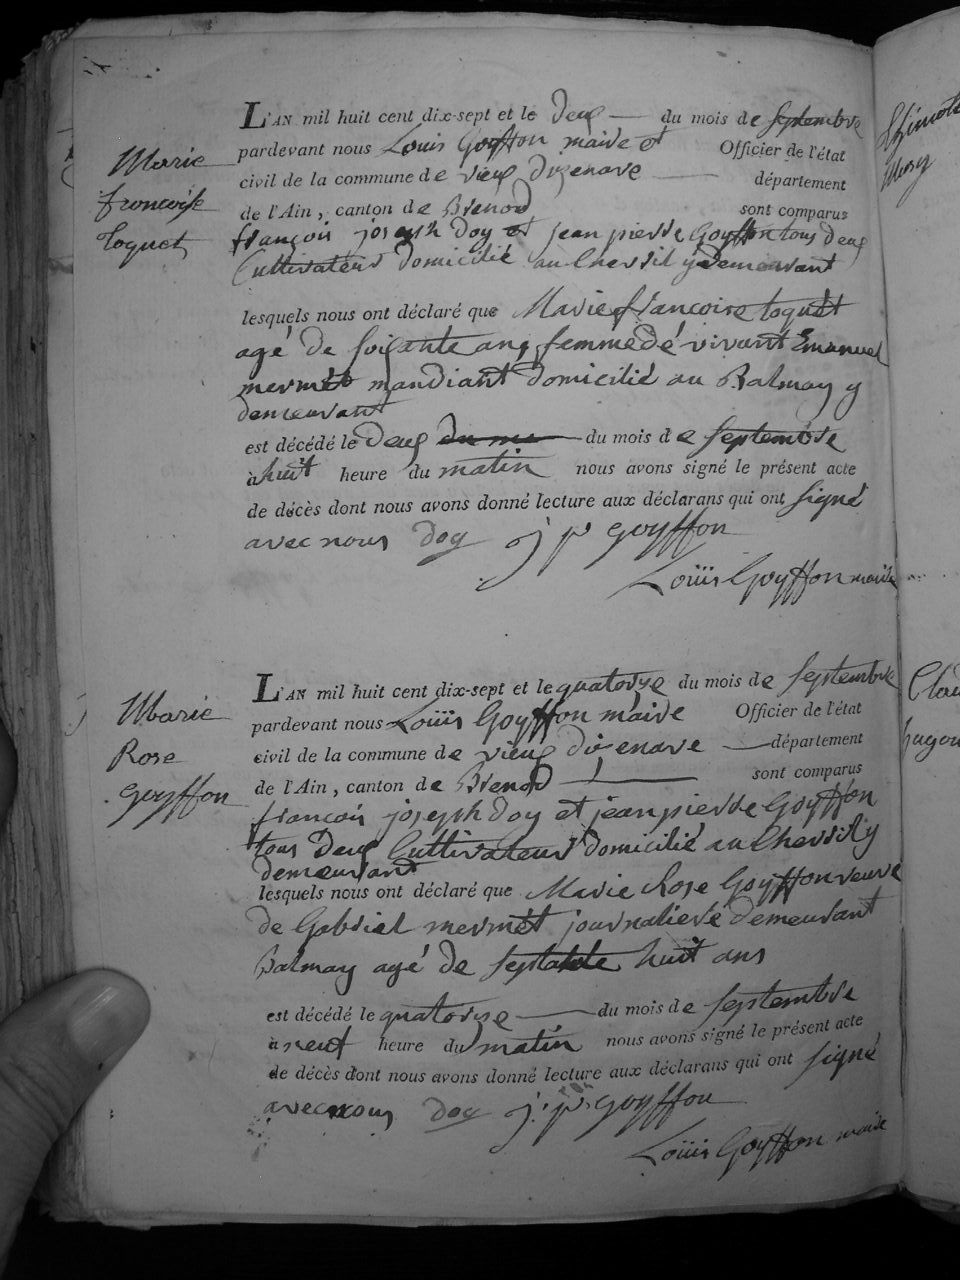 Marie
francoise
Toquet
L'AN mil huit cent dix-sept et le deux du mois de septembre
pardevant nous Louis Goyffon maire et Officier de l'état
civil de la commune de vieux dizenave département
de l'Ain, canton de Brenod sont comparus
françois joseph doy et jean pierre Goyffon tous deux
Cultivateurs domicilié au Chevril y demeurant
lesquels nous ont déclaré que Marie francoise toquet
agé de soixante ans femme dé vivant Emanuel
mermet mandiant domicilié au Balmay y
demeurant
est décédé le deux du mois de septembre
à huit heure du matin nous avons signé le présent acte
de décès dont nous avons donné lecture aux déclarans qui ont signé
avec nous doy j p goyffon
Louis Goyffon maire
Marie
Rose
goyffon
L'AN mil huit cent dix-sept et le quatorze du mois de septembre
pardevant nous Louis Goyffon maire Officier de l'état
civil de la commune de vieux dizenave département
de l'Ain, canton de Brenod sont comparus
francois joseph doy et jean pierre Goyffon
tous deux Cultivateurs domicilié au Chevril y
demeurant
lesquels nous ont déclaré que Marie Rose Goyffon veuve
de Gabriel mermet journaliere demeurant
Balmay agé de septante huit ans
est décédé le quatorze du mois de septembre
à neuf heure du matin nous avons signé le présent acte
de décès dont nous avons donné lecture aux déclarans qui ont signé
avec nous doy j. p. goyffon
Louis Goyffon maire